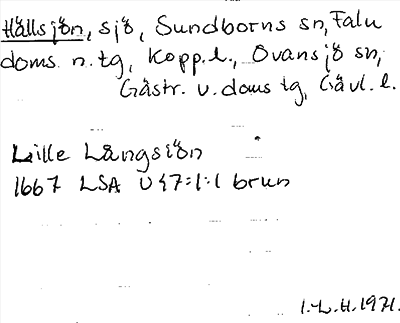 Hällsjön, sjö, Sundborns sn, Falu
doms. n. tg, Kopp. l., Ovansjö sn,
Gästr. v. doms tg, Gävl. l.
Lille Långsiön
1667 LSA U 47:1:1 brun
I.-L. H. 1971.